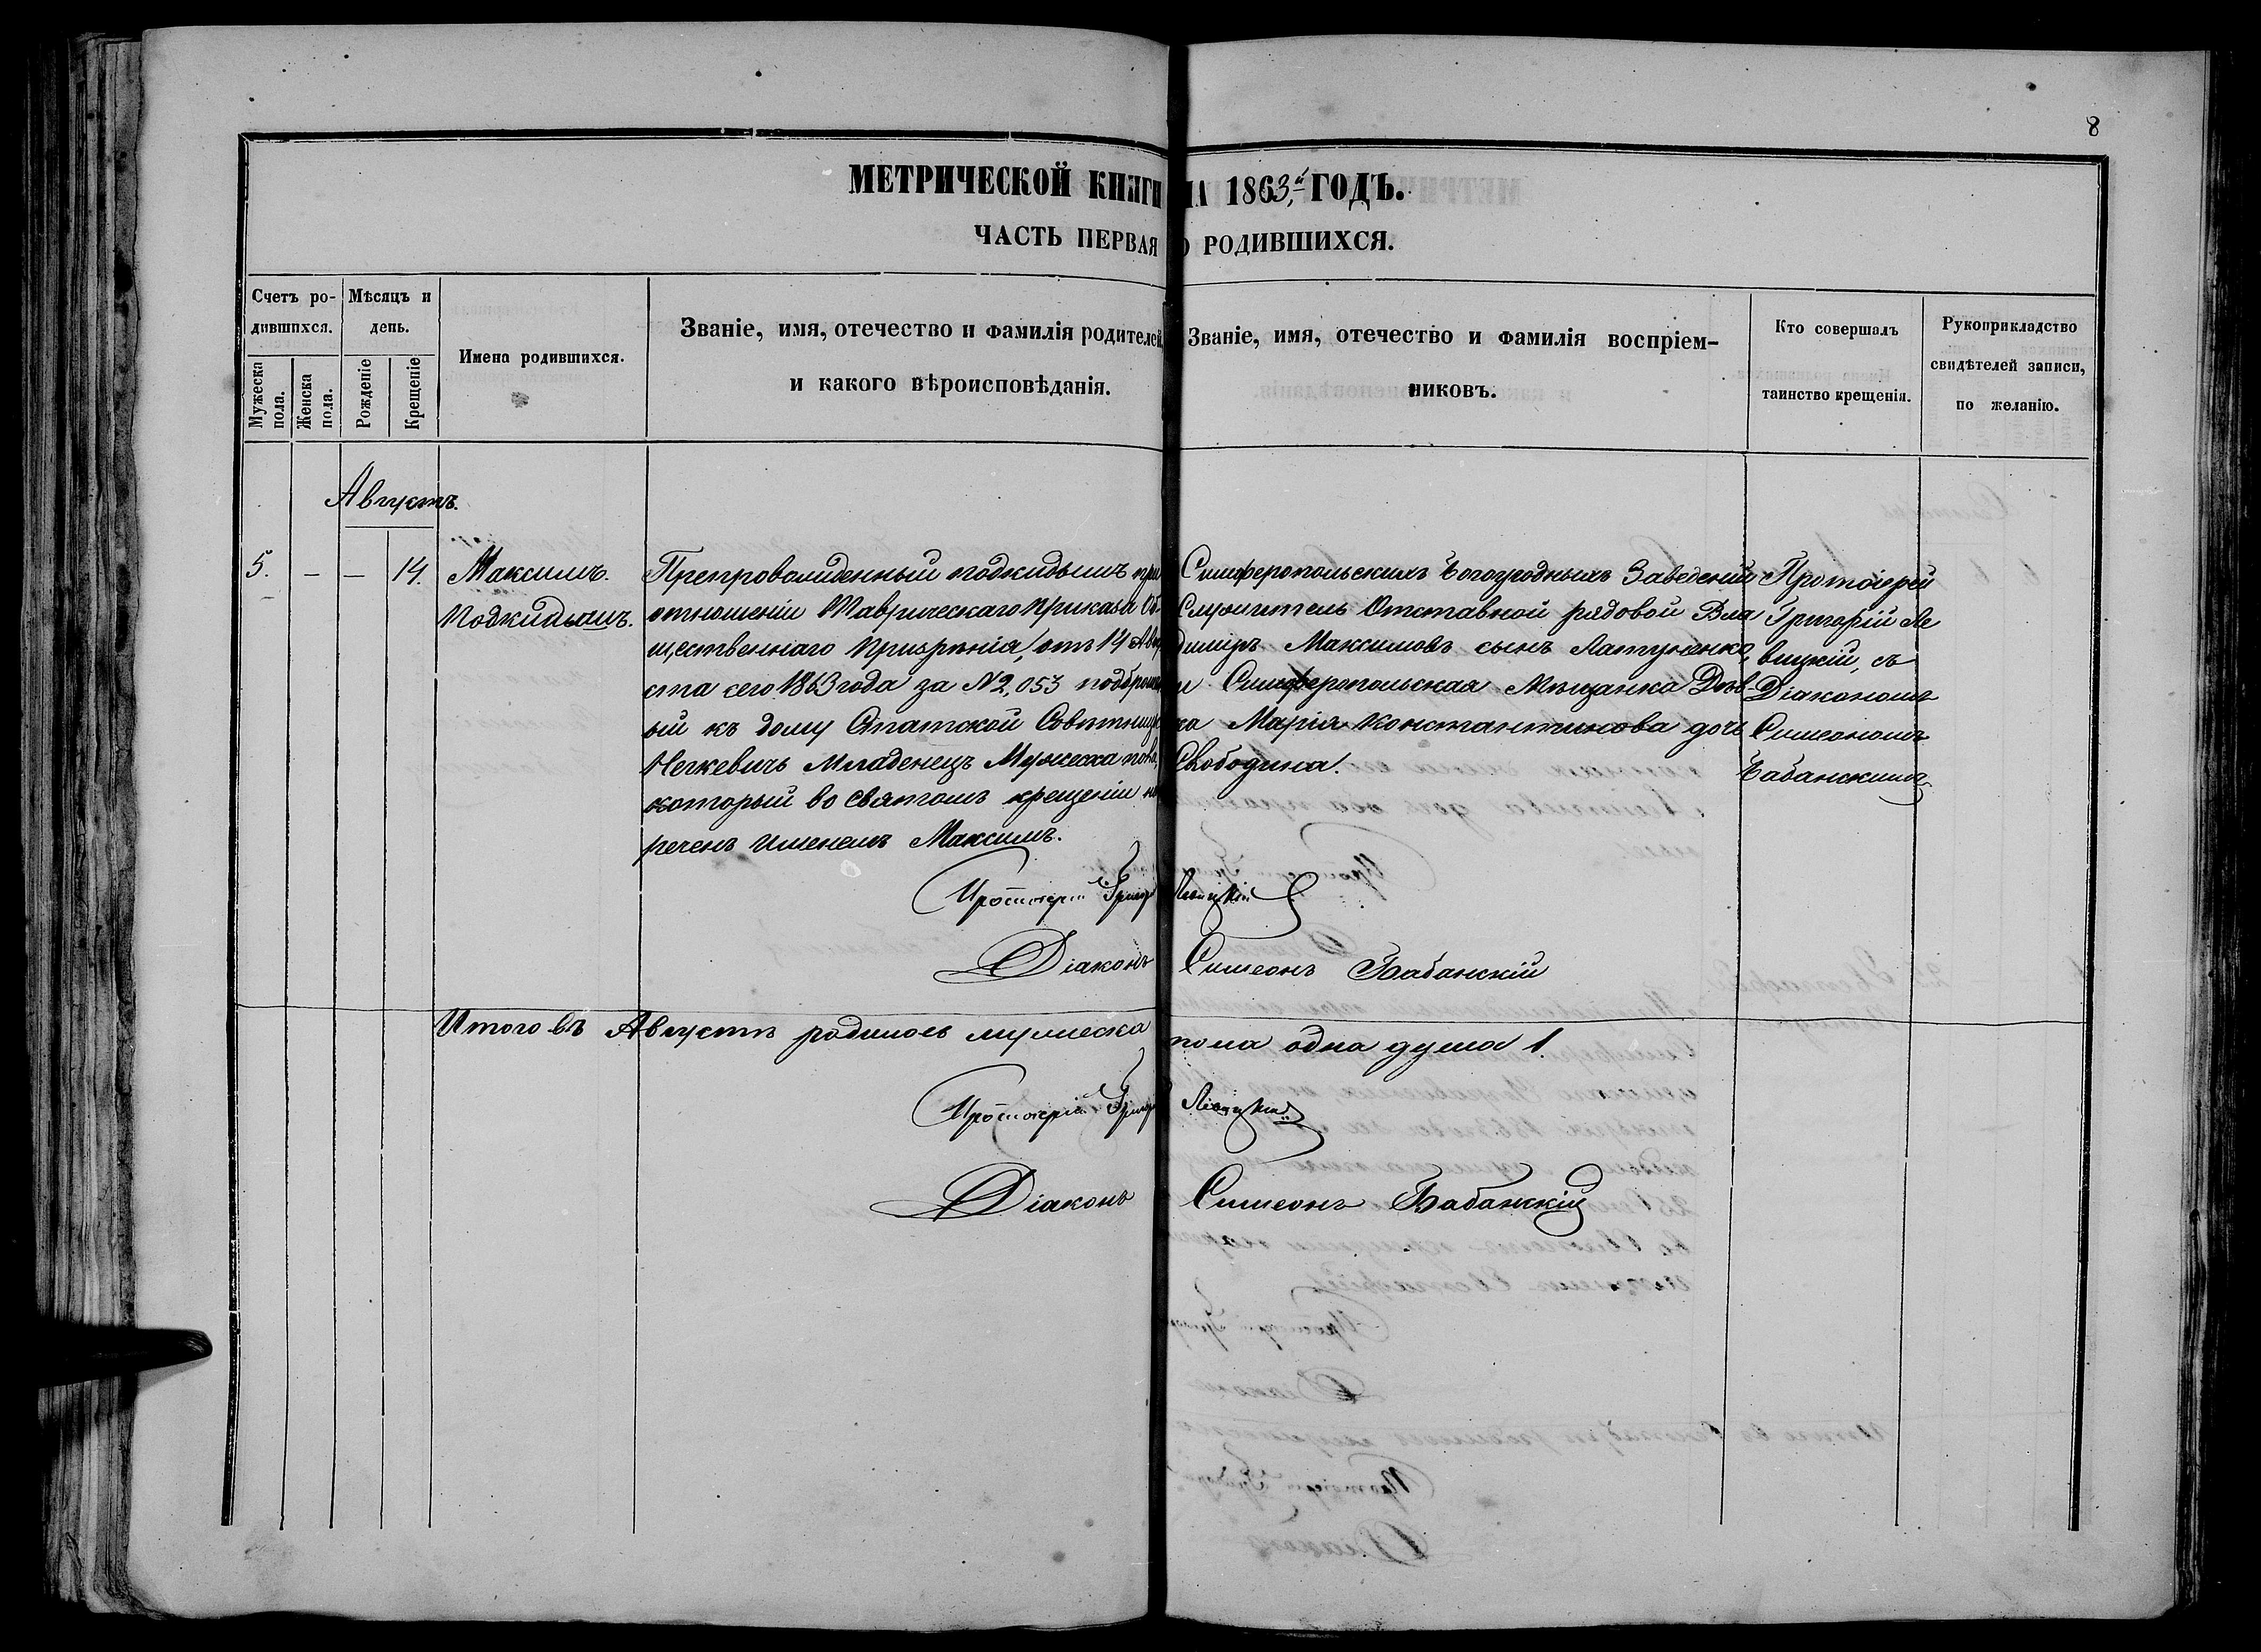 8
МЕТРИЧЕСКОЙ КНИГИ НА 1863й ГОДЪ.
ЧАСТЬ ПЕРВАЯ О РОДИВШИХСЯ.
Счетъ ро-
дившихся.
Мужеска
пола.
Женска
пола.
Мѣсяцъ и
день.
Рожденіе
Крещеніе
Имена родившихся.
Званіе, имя, отечество и фамилія родителей,
и какого вѣроисповѣданія.
Званіе, имя, отечество и фамилія воспріем-
никовъ.
Кто совершалъ
таинство крещенія.
Рукоприкладство
свидѣтелей записи,
по желанію.
Августъ.
5. – – 14.
Максимъ.
Подкидышъ.
Препровожденный подкидышъ при
отношеніи Таврическаго Приказа Об
щественнаго Призрѣнія, отъ 14 Авгу
ста сего 1863 года за № 2,053 подброшен
ый къ дому Статской Совѣтницы
Младенецъ Мужеска пола,
который во Святомъ крещеніи на
реченъ именемъ Максимъ.
Симферопольскихъ Богоугодныхъ Заведеній
Служитель Отставной рядовой Вла
димиръ Максимовъ сынъ Латуненко,
и Симферопольская Мѣщанка Дѣв-
ка Марія Константинова дочь
Свободина.
Протоіерей
Григорій Ле
вицкій, съ
Діакономъ
Симеономъ
Бабанскимъ
Протоіерей Григорій Левицкій
Діаконъ Симеонъ Бабанскій
Итого въ Августѣ родилось мужеска пола одна душа 1.
Протоіерей Григорій Левицкій
Діаконъ Симеонъ Бабанскій